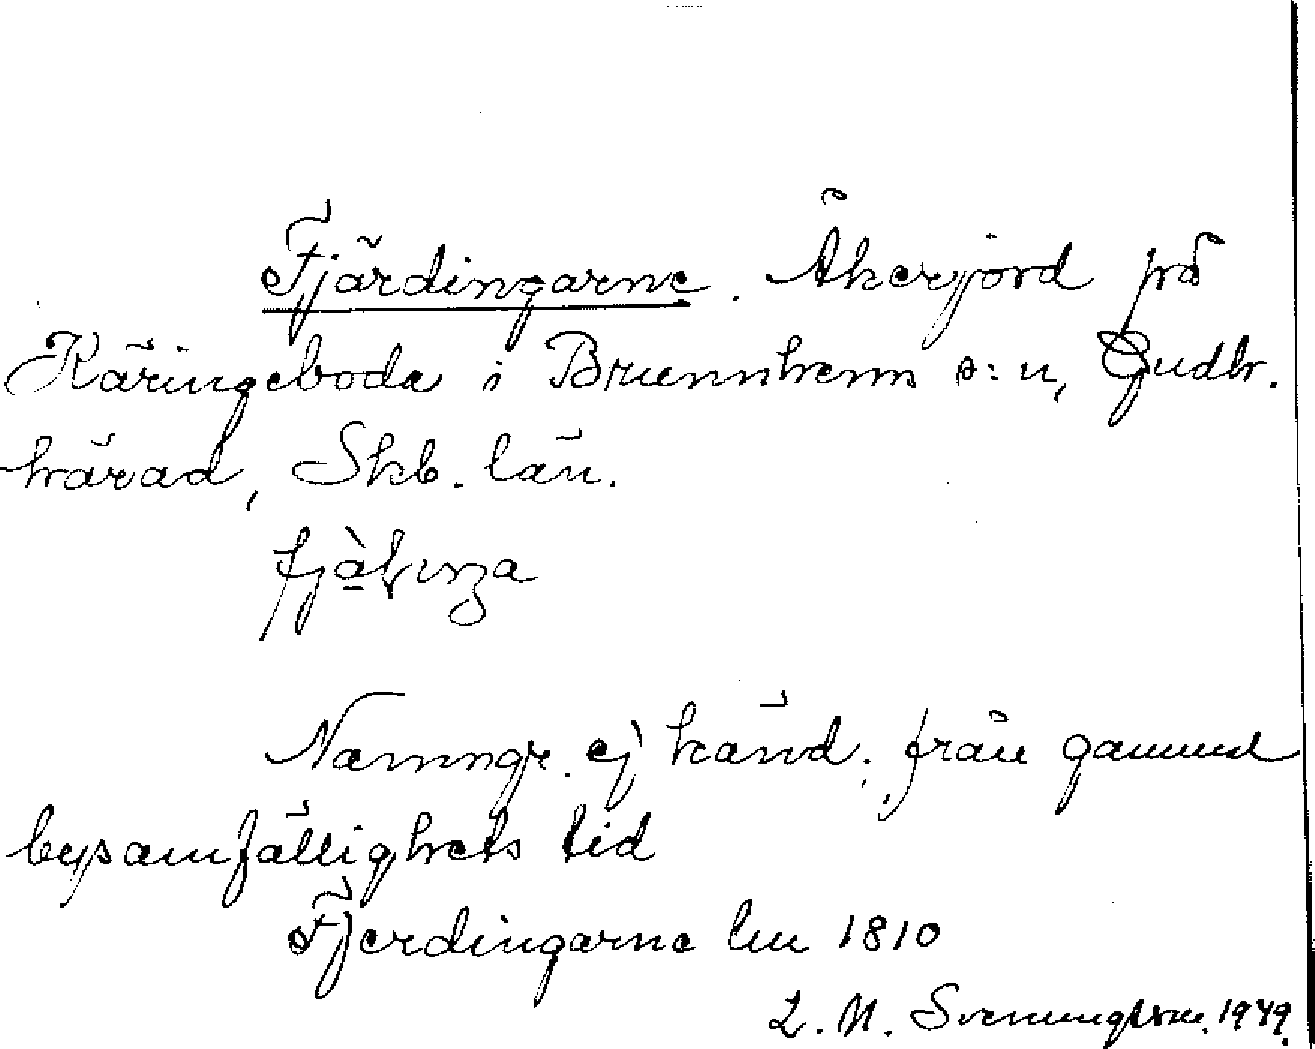 Fjärdingarne. Åkerjord på
Käringeboda i Brunnhem s:n, Gudh.
härad, Skb. län.
Namngr. ej känd; från gammal
bysamfällighets tid
Fjerdingarne lm 1810
L. M. Svenungsson. 1949.